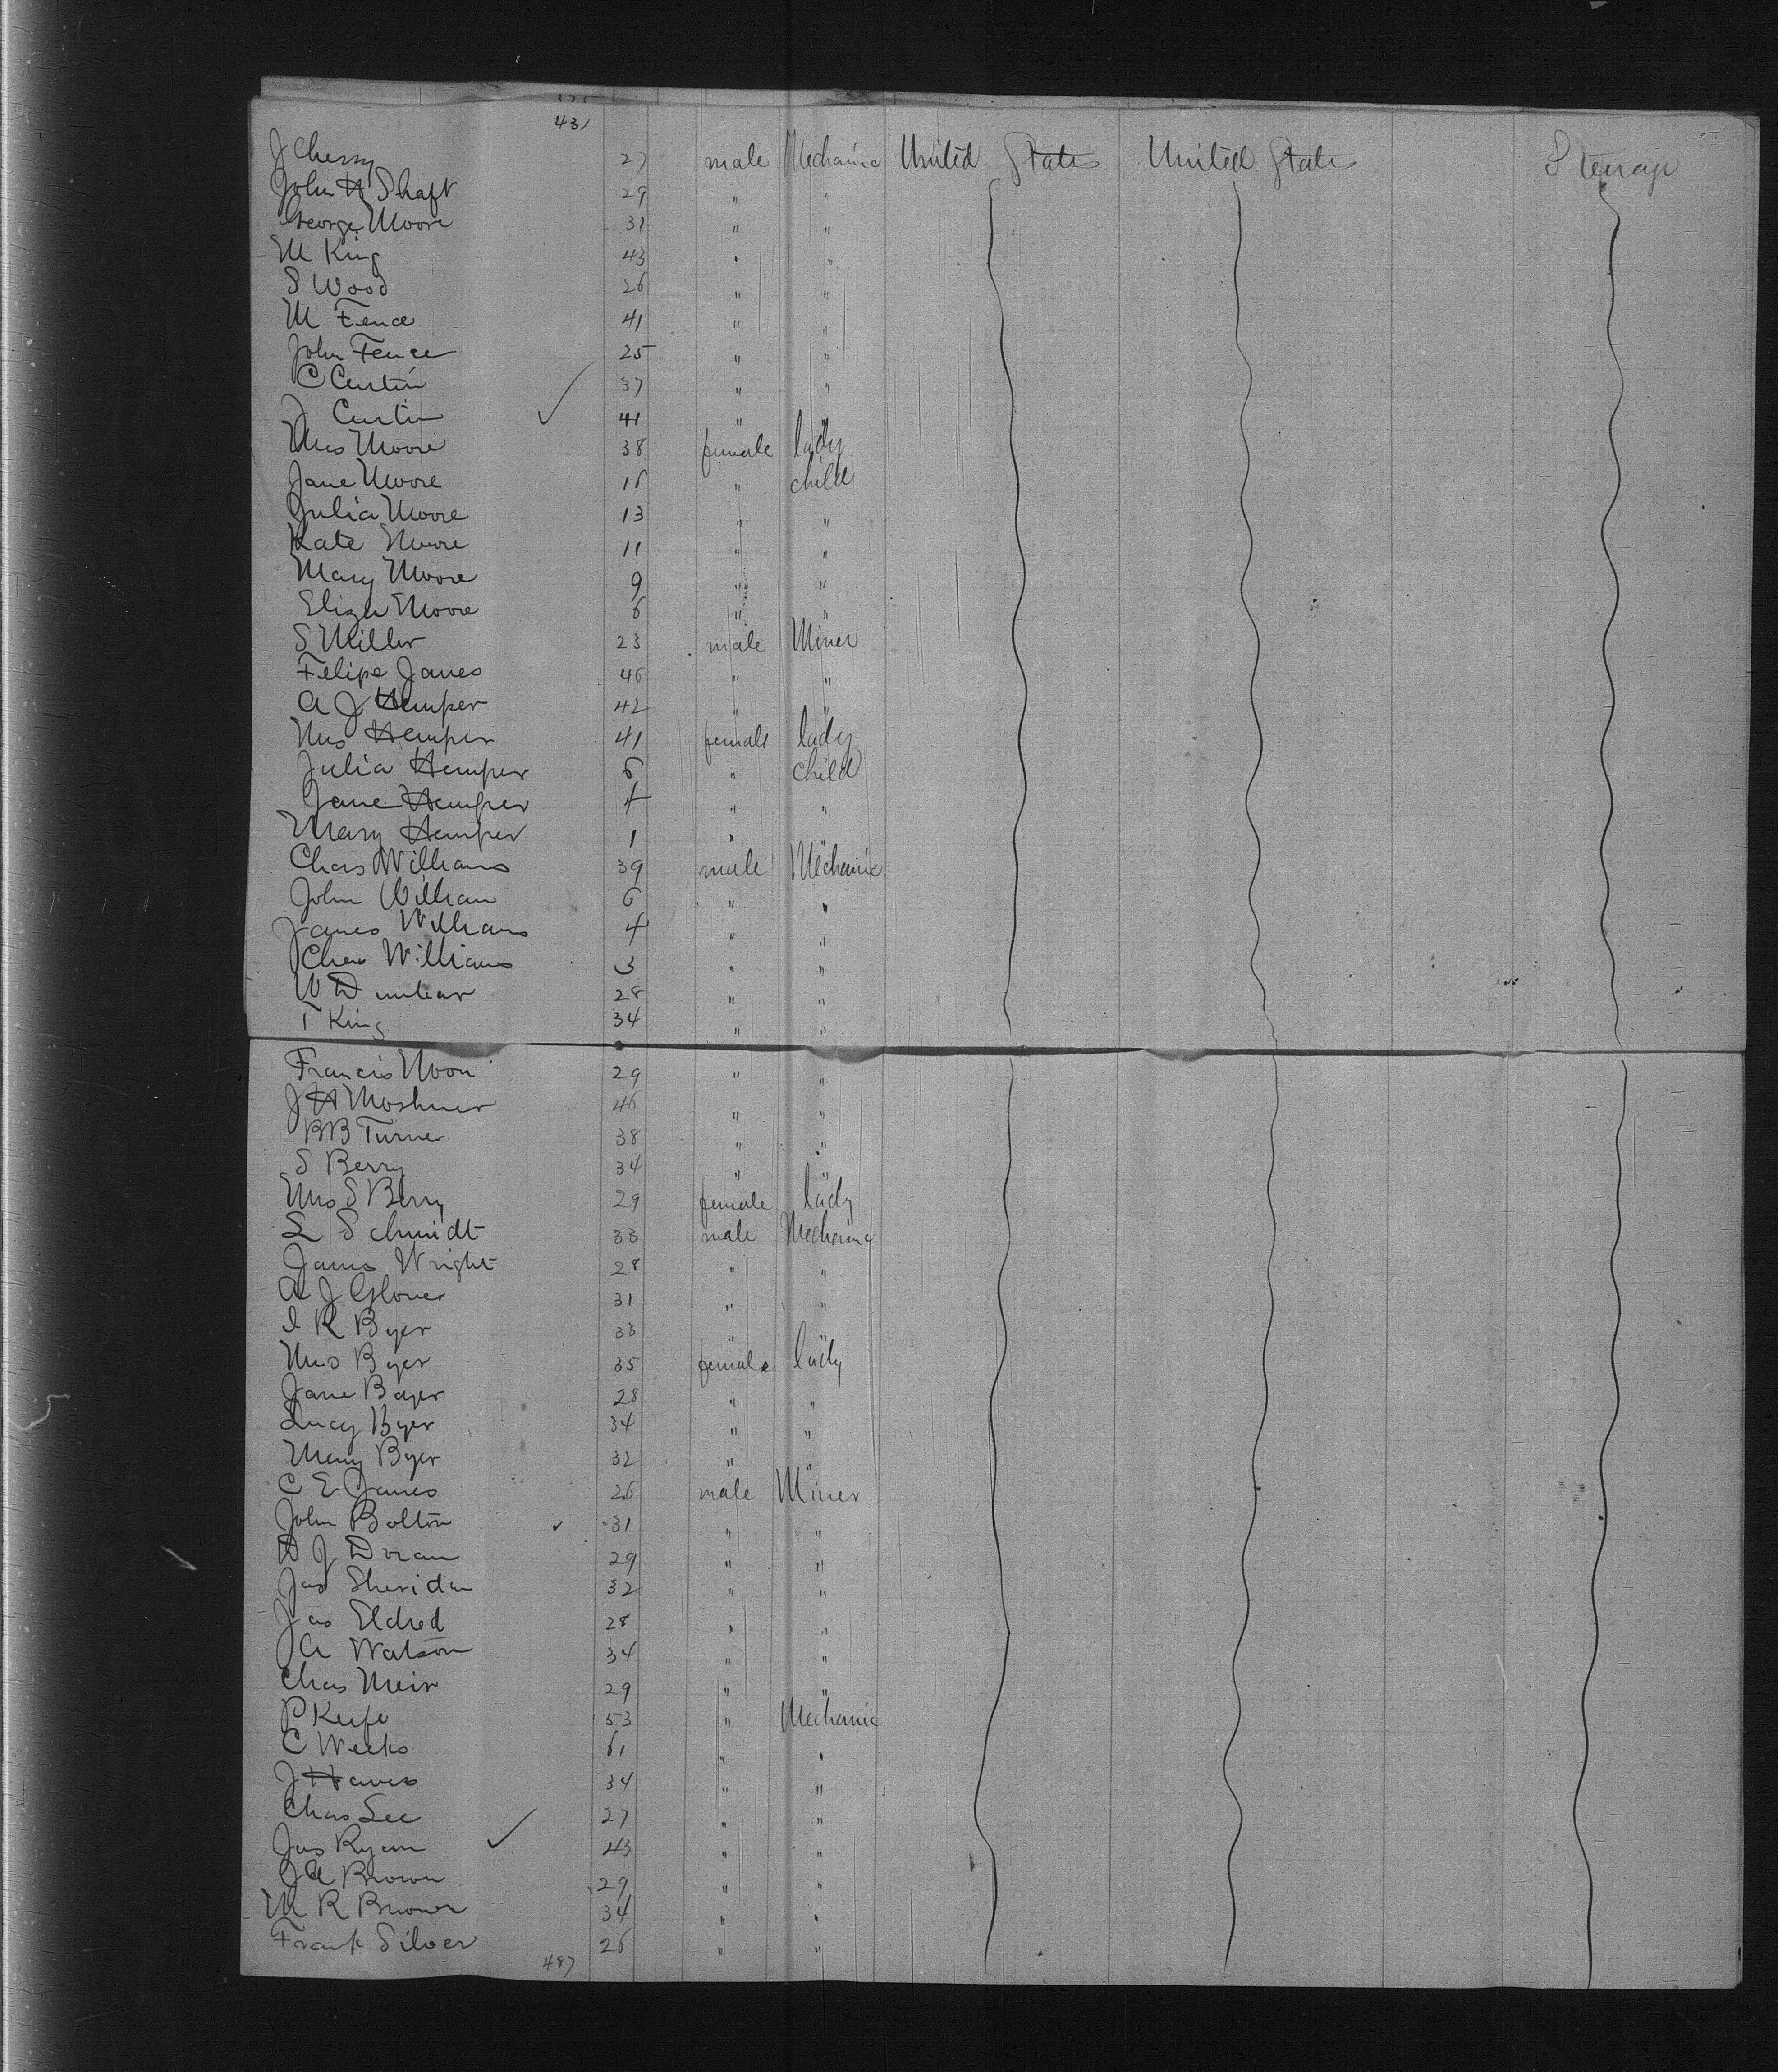 431
J Cherry 27 male Mechanic United States United States Steerage
John H Shaft 29 " "
George Moore 31 " "
M King 43 " "
S Wood 26 " "
M Fence 41 " "
John Fence 25 " "
C Curtin 37 " "
J Curtin 41 " "
Mrs Moore 38 female lady
Jane Moore 15 " child
Julia Moore 13 " "
Kate Moore 11 " "
Mary Moore 9 " "
Eliza Moore 6 " "
S Miller 23 male Miner
Felipe Janes 46 " "
A J Hemper 42 " "
Mrs Hemper 41 female lady
Julia Hemper 6 " child
Jane Hemper 4 " "
Mary Hemper 1 " "
Chas Williams 39 male Mechanic
John William 6 " "
James Williams 4 " "
Chas Williams 3 " "
W Dunbar 28 " "
T King 34 " "
Francis Moon 29 " "
J H Moshner 46 " "
B B Turner 38 " "
S Berry 34 " "
Mrs S Berry 29 female lady
L Schmidt 33 male Mechanic
James Wright 28 " "
A J Glover 31 " "
I R Byer 33 " "
Mrs Byer 35 female lady
Jane Bayer 28 " "
Lucy Byer 34 " "
Mary Byer 32 " "
C E James 26 male Miner
John Bolton 31 " "
D J Doran 29 " "
Jas Sheridan 32 " "
Jas Eldred 28 " "
A Watson 34 " "
Chas Meir 29 " "
P Keefe 53 " Mechanic
C Weeks 61 " "
J Hanes 34 " "
Chas Lee 27 " "
Jas Ryan 43 " "
J A Brown 29 " "
M R Bruner 34 " "
Frank Silver 26 " "
487